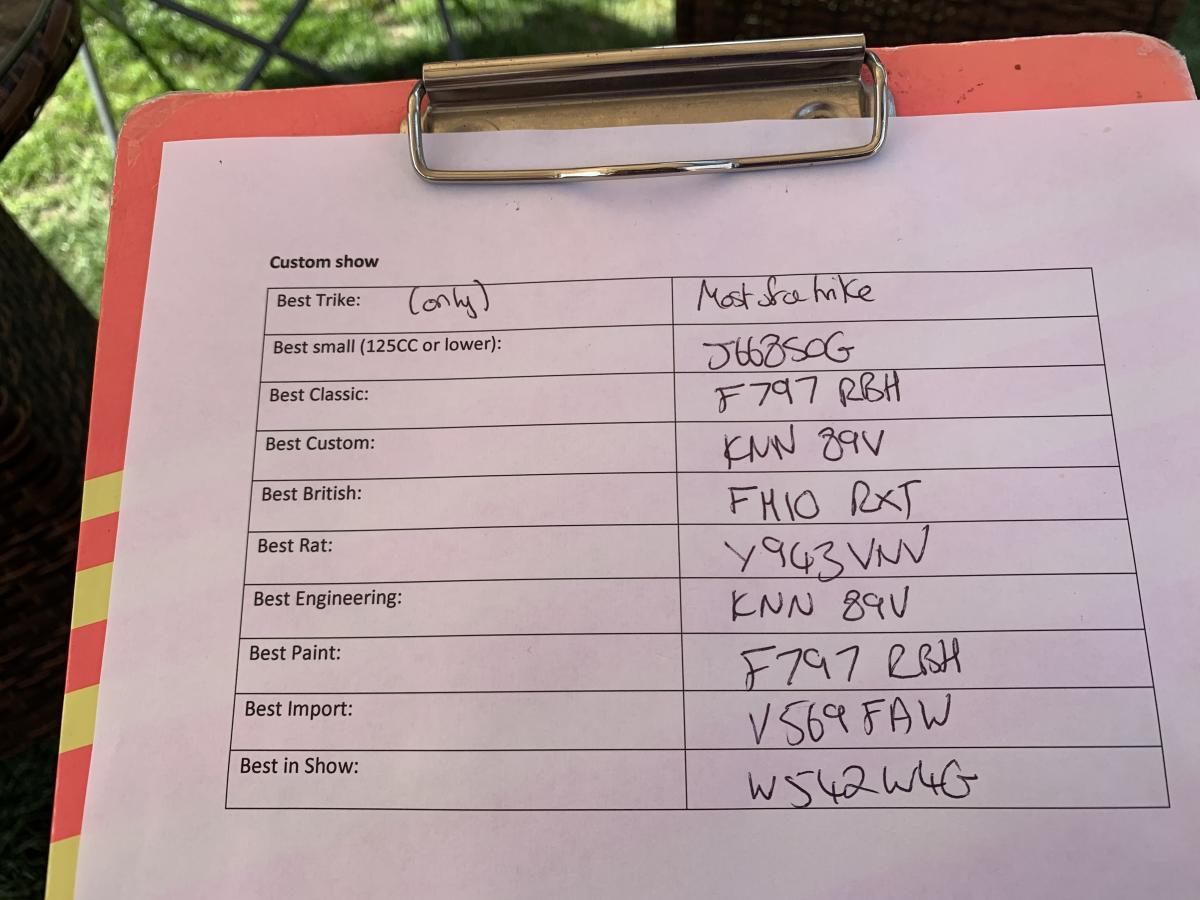 Custom show
Best Trike: (only) Most trike
Best small (125CC or lower): J668SOG
Best Classic: F797 RBH
Best Custom: KNN 89V
Best British: FH10 RXT
Best Rat: Y943VNV
Best Engineering: KNN 89V
Best Paint: F797 RBH
Best Import: V569 FAW
Best in Show: W542W4G